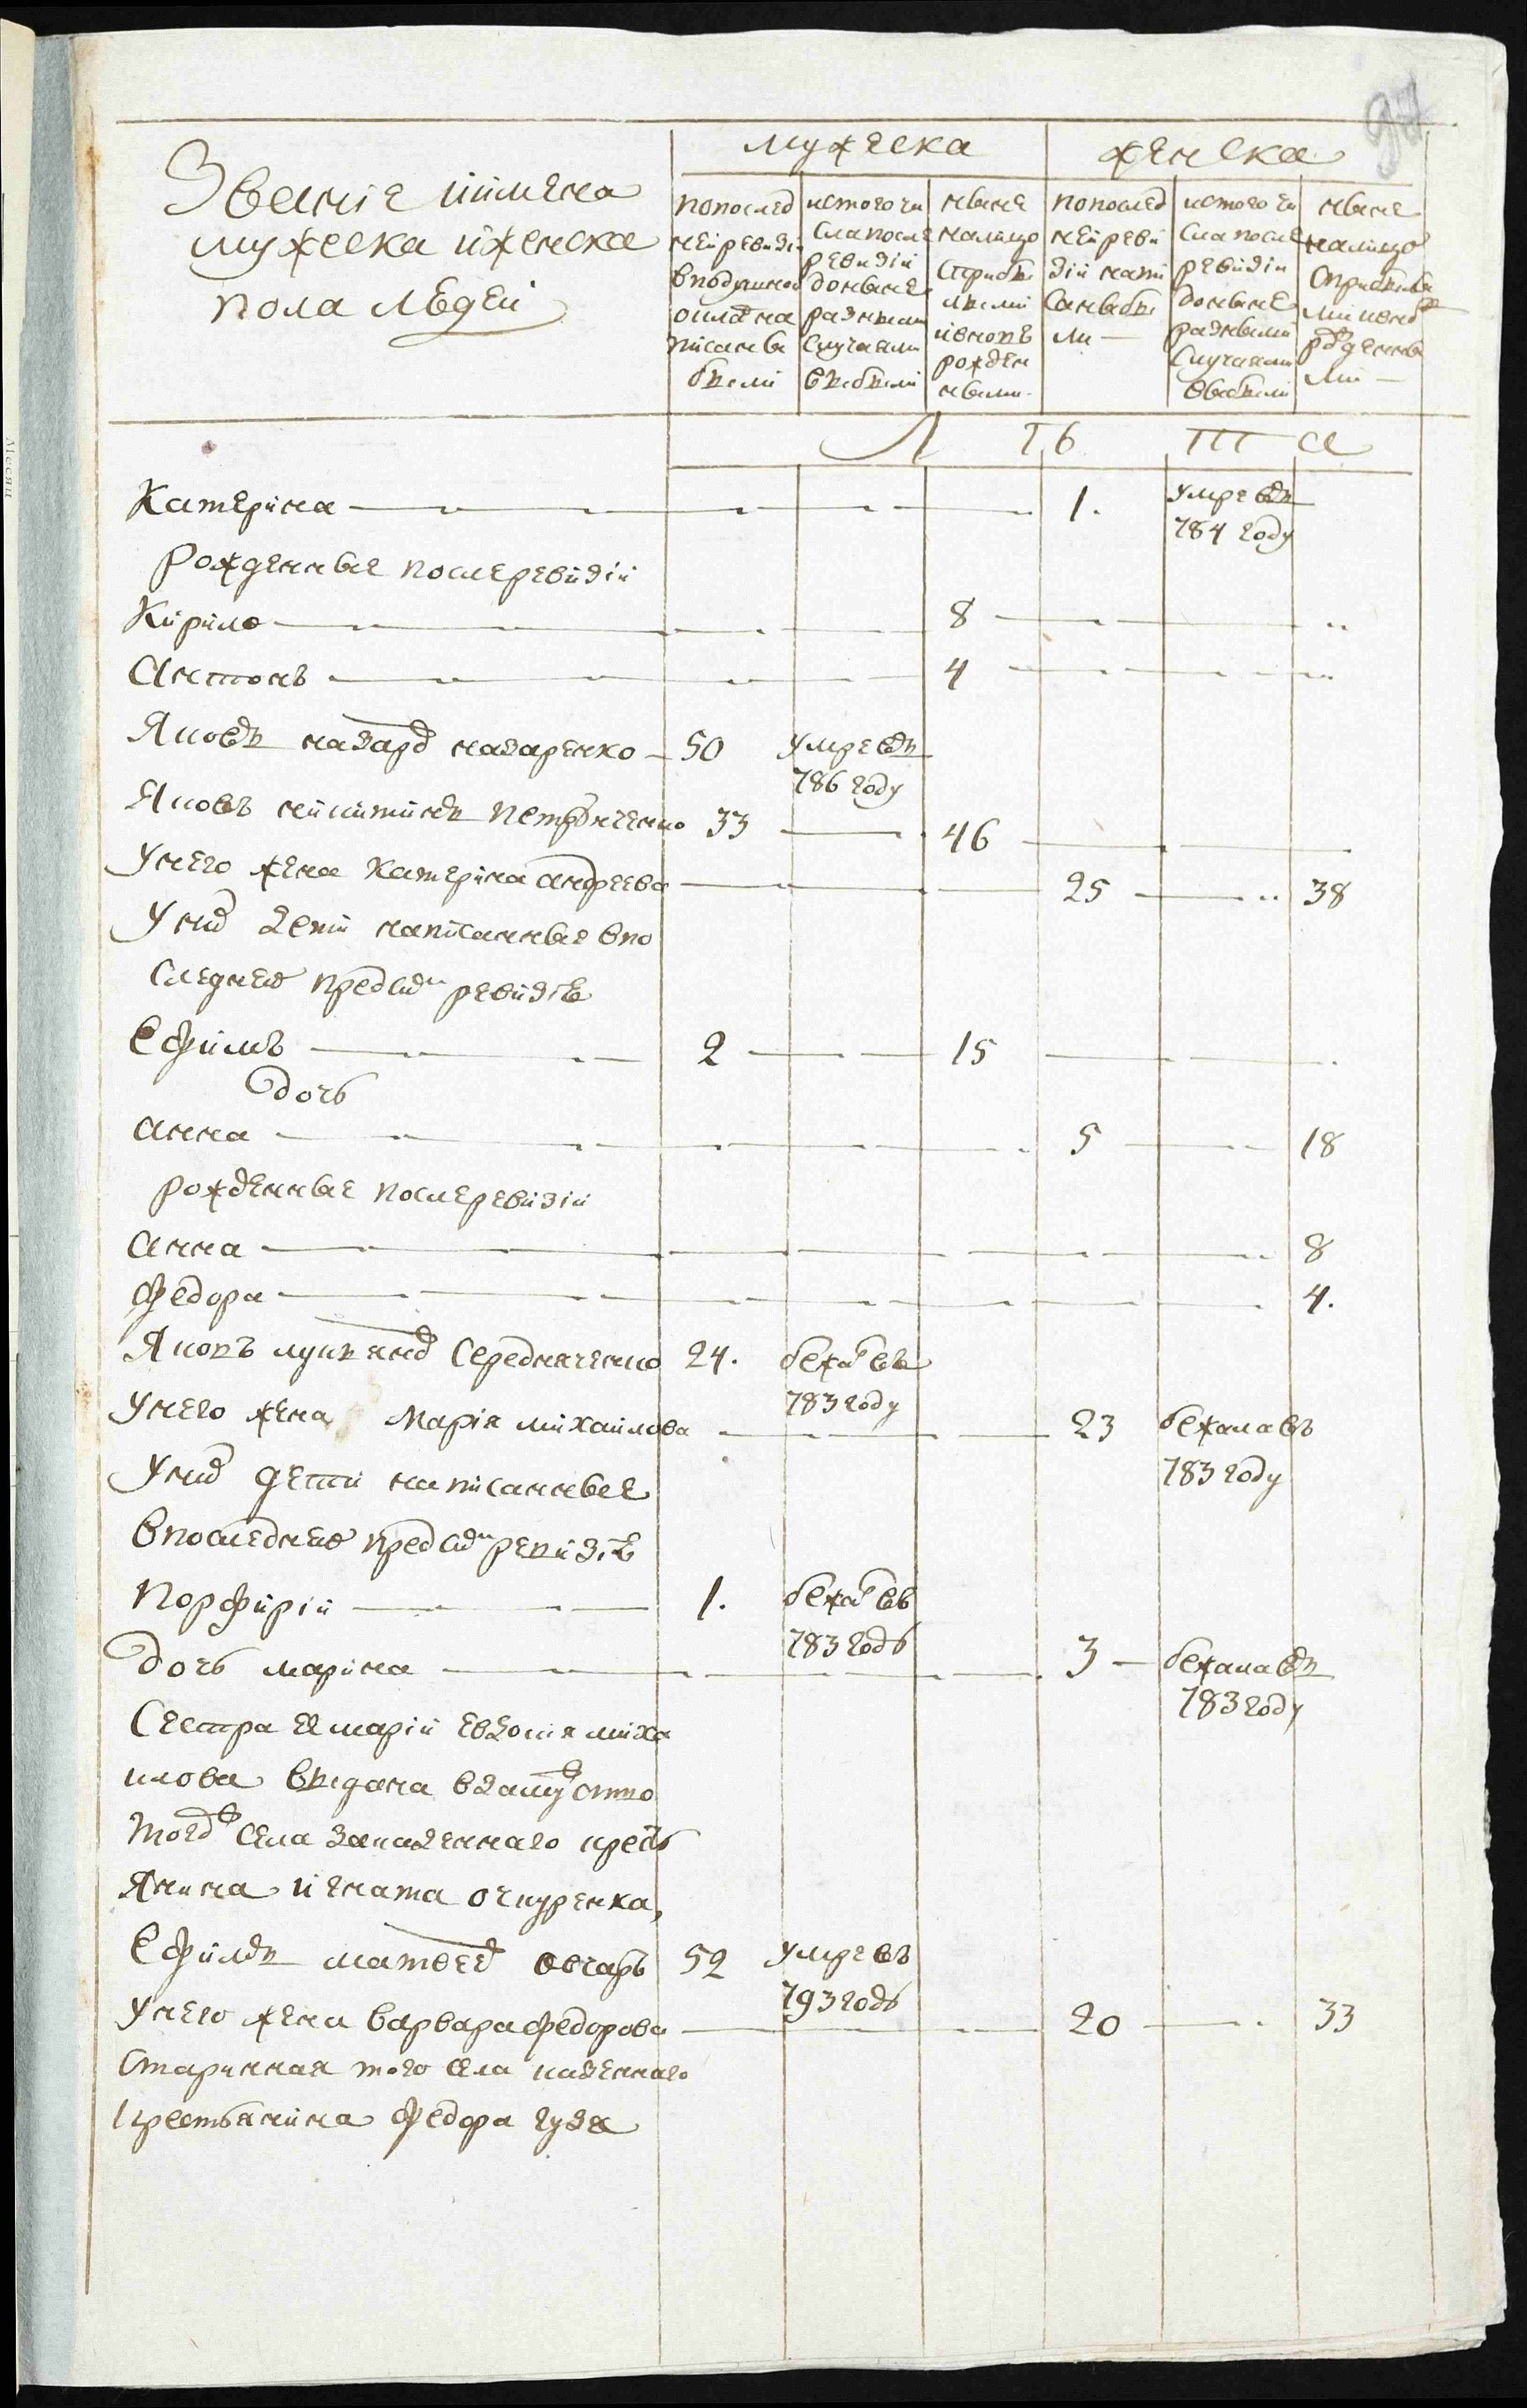 97
Званіе иимена
мужеска иженска
пола людей
мужеска
женска
попослед
ней ревизіи
вподушной
окладна
писаны
были
истого чи
сла после
ревизіи
доныне
разными
случаями
выбыли
ныне
налицо
сприбы
лыми
ивновь
рожден
ными
попослед
ней реви
зіи напи
саны бы
ли —
истого чи
сла после
ревизіи
доныне
разными
случаями
выбыли
ныне
налицо
сприбылы
ми ивно
рожденны
ми —
Л Ѣ Т А
Катерина — 1. умре въ
784 году
рожденные послеревизіи
Кирило — 8
Антонъ — 4
Яковъ назаро назаренко 50 умре въ
786 году
Яковъ никитинъ петрученко 33 — 46
Унего жена катерина андреева — 25 — 38
Уних дети написанные впо
следней пред сим ревизіе
Ефимъ — 2 — 15
дочь
анна — 5 — 18
рожденные послеревизіи
анна — 8
федора — 4.
Яковъ лукяно середняченко 24. бежа въ
783 году
Унего жена Марія михаилова — 23 бежала въ
783 году
Уних дети написанные
впоследней пред сим ревизіе
порфирій — 1. бежа въ
783 годь
дочь марина — 3 — бежала въ
783 году
Сестра ея маріи евдокия миха
илова выдана взамуж што
того села казенного кресть
янина игната очкуренка,
Ефимъ матвее овчарь 52 умре въ
793 годь
Унего жена варвара федорова — 20 — 33
Старинная того села казенного
крестьянина федора гудя